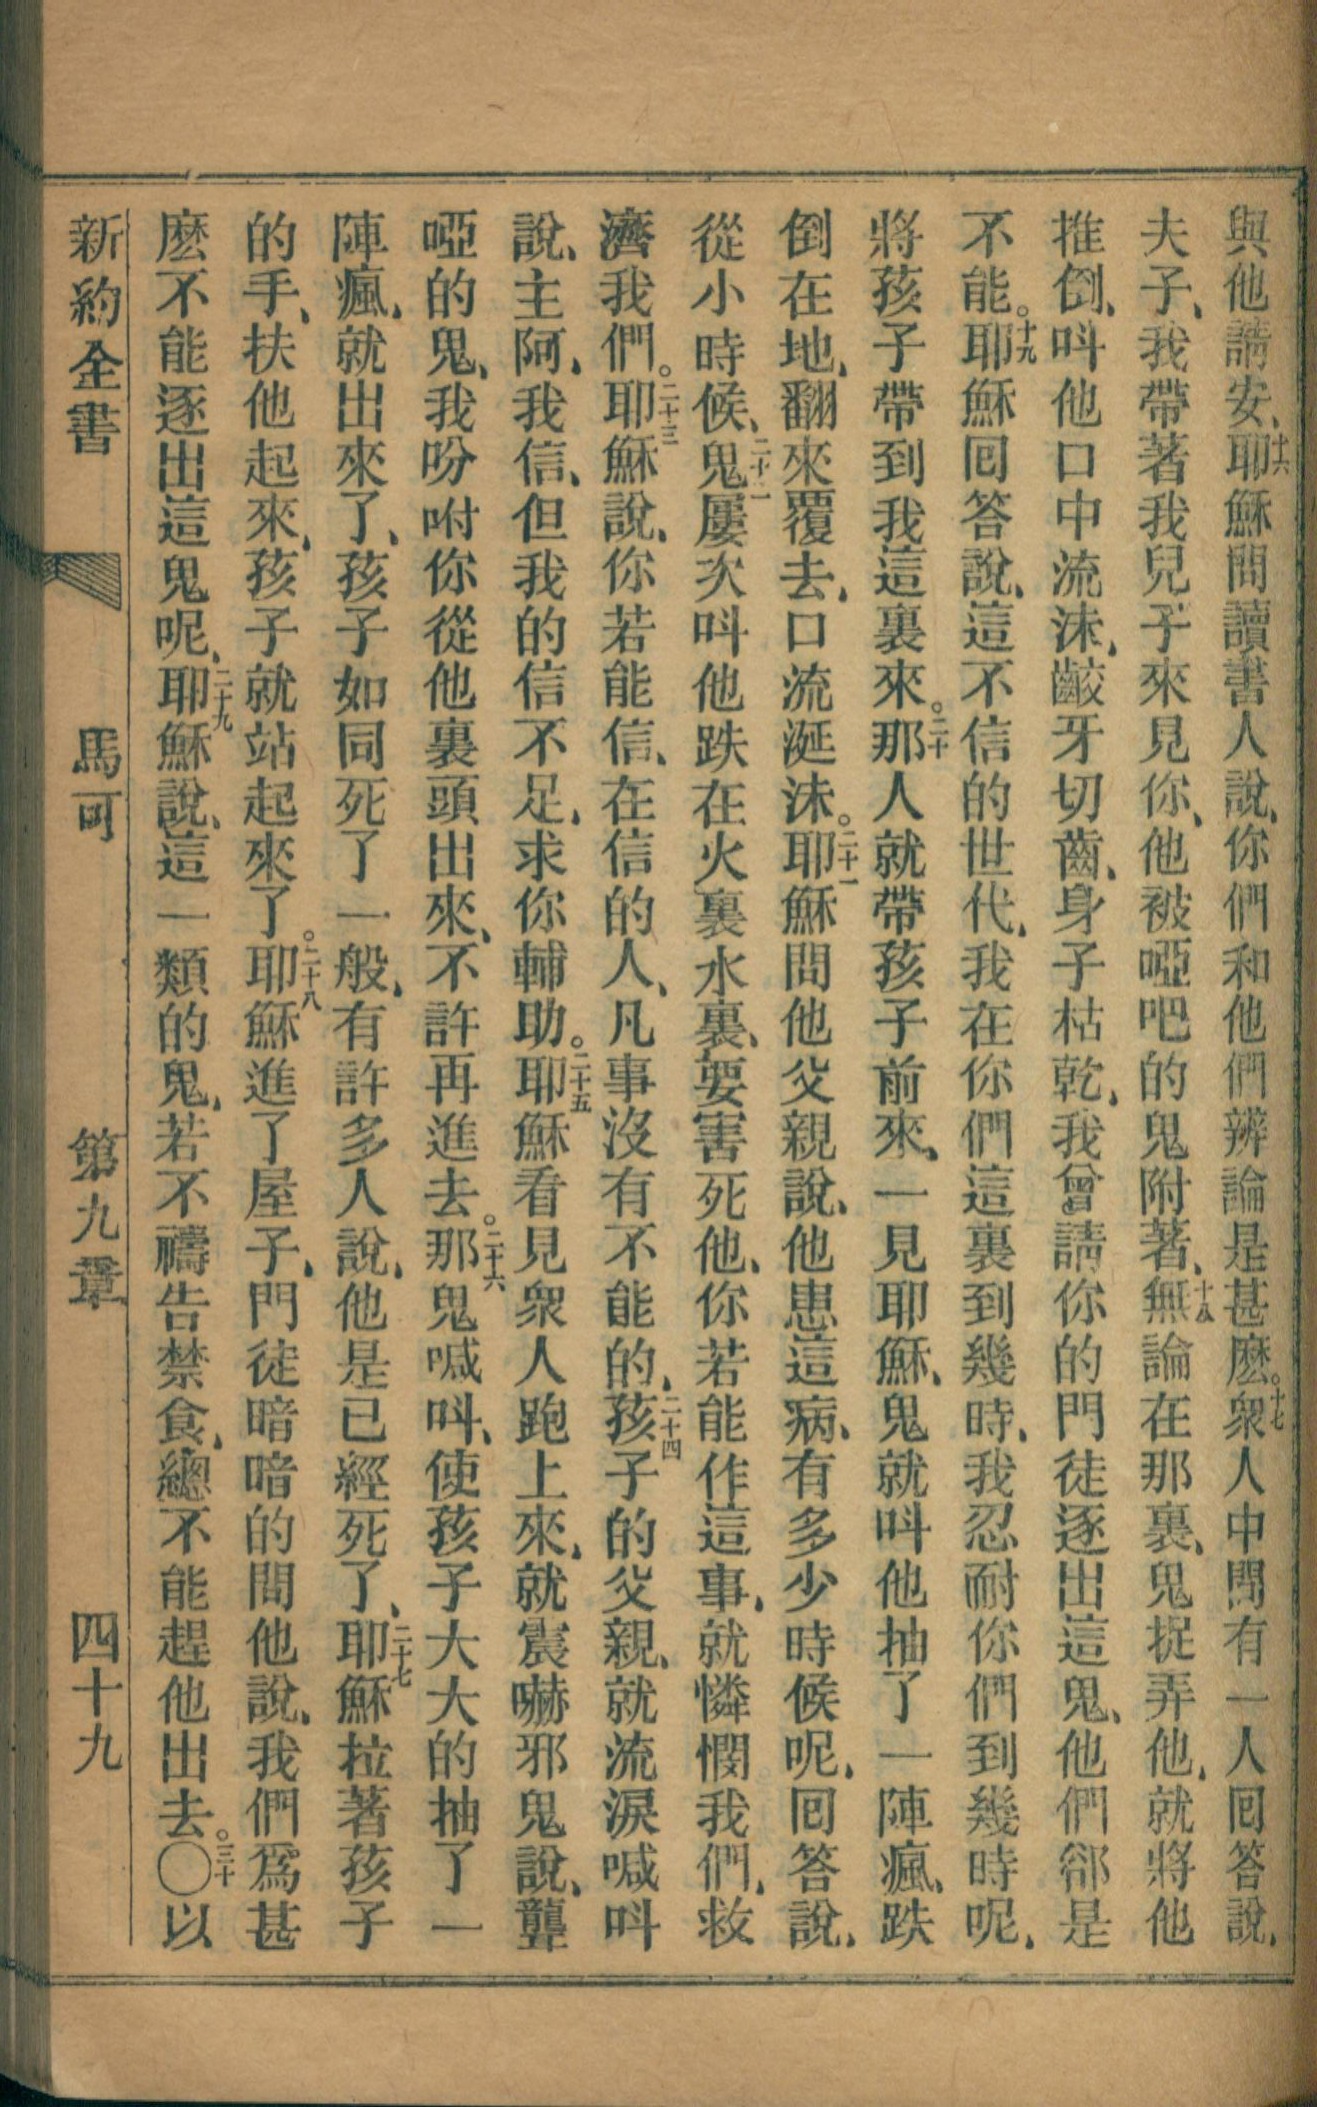 與他請安、十六耶穌問讀書人說、你們和他們辨論是甚麽。十七衆人中間有一人回答說、
夫子、我帶著我兒子來見你、他被啞吧的鬼附著、十八無論在那裏、鬼捉弄他、就將他
推倒、呌他口中流沫、齩牙切齒、身子枯乾、我曾請你的門徒逐出這鬼、他們郤是
不能。十九耶穌回答說、這不信的世代、我在你們這裏到幾時、我忍耐你們到幾時呢、
將孩子帶到我這裏來。二十那人就帶孩子前來、一見耶穌、鬼就呌他抽了一陣瘋、跌
倒在地、翻來覆去、口流涎沫。二十一耶穌問他父親說、他患這病、有多少時候呢、回答說、
從小時候、二十二鬼屢次呌他跌在火裏水裏、要害死他、你若能作這事、就憐憫我們、救
濟我們。二十三耶穌說、你若能信、在信的人、凡事沒有不能的、二十四孩子的父親、就流淚喊呌
說、主阿、我信、但我的信不足、求你輔助。二十五耶穌看見衆人跑上來、就震嚇邪鬼說、聾
啞的鬼、我吩咐你從他裏頭出來、不許再進去。二十六那鬼喊呌、使孩子大大的抽了一
陣瘋、就出來了、孩子如同死了一般、有許多人說、他是已經死了、二十七耶穌拉著孩子
的手、扶他起來、孩子就站起來了。二十八耶穌進了屋子、門徒暗暗的問他說、我們爲甚
麽不能逐出這鬼呢、二十九耶穌說、這一類的鬼、若不禱告禁食、總不能趕他出去。三十〇以
新約全書　馬可　第九章　四十九